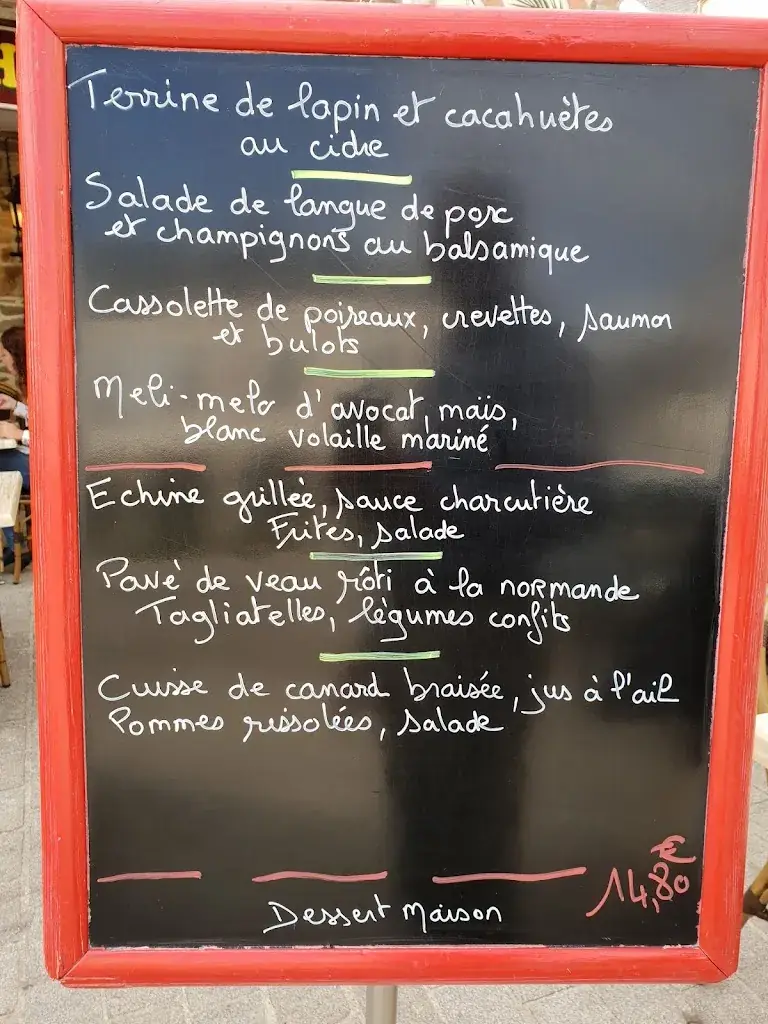 Terrine de lapin et cacahuètes
au cidre
Salade de langue de porc
et champignons au balsamique
Cassolette de poireaux, crevettes, saumon
et bulots
Meli-melo d'avocat, maïs,
blanc volaille mariné
Echine grillée, sauce charcutière
Frites, salade
Pavé de veau rôti à la normande
Tagliatelles, légumes confits
Cuisse de canard braisée, jus à l'ail
Pommes rissolées, salade
€
14,80
Dessert Maison